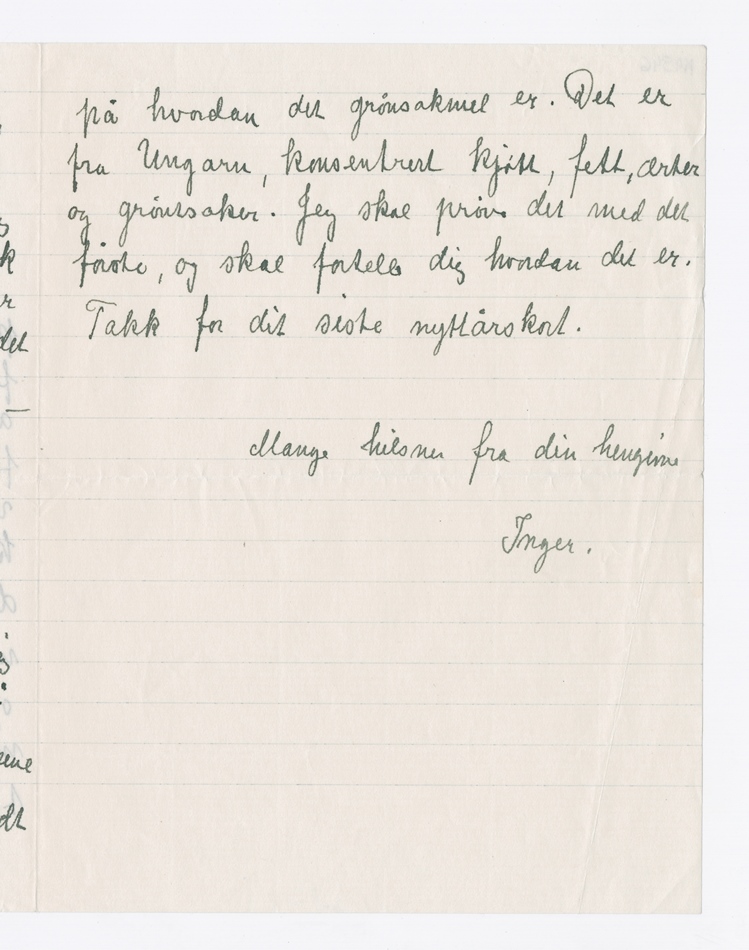 på hvordan det grönsakmel er. Det er
fra Ungarn, konsentrert kjött, fett, ærter
og gröntsaker. Jeg skal pröve det med det
förste, og skal fortelle dig hvordan det er.
Takk for dit siste nyttårskort.
Mange hilsner fra din hengivne
Inger.
k
r
det
dt